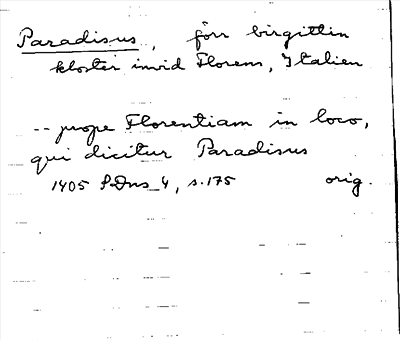 Paradisus, förr birgittin
kloster invid Florens, Italien
-- prope Florentiam in loco,
qui dicitur Paradisus
1405 S.Dns 4, s.175 orig.